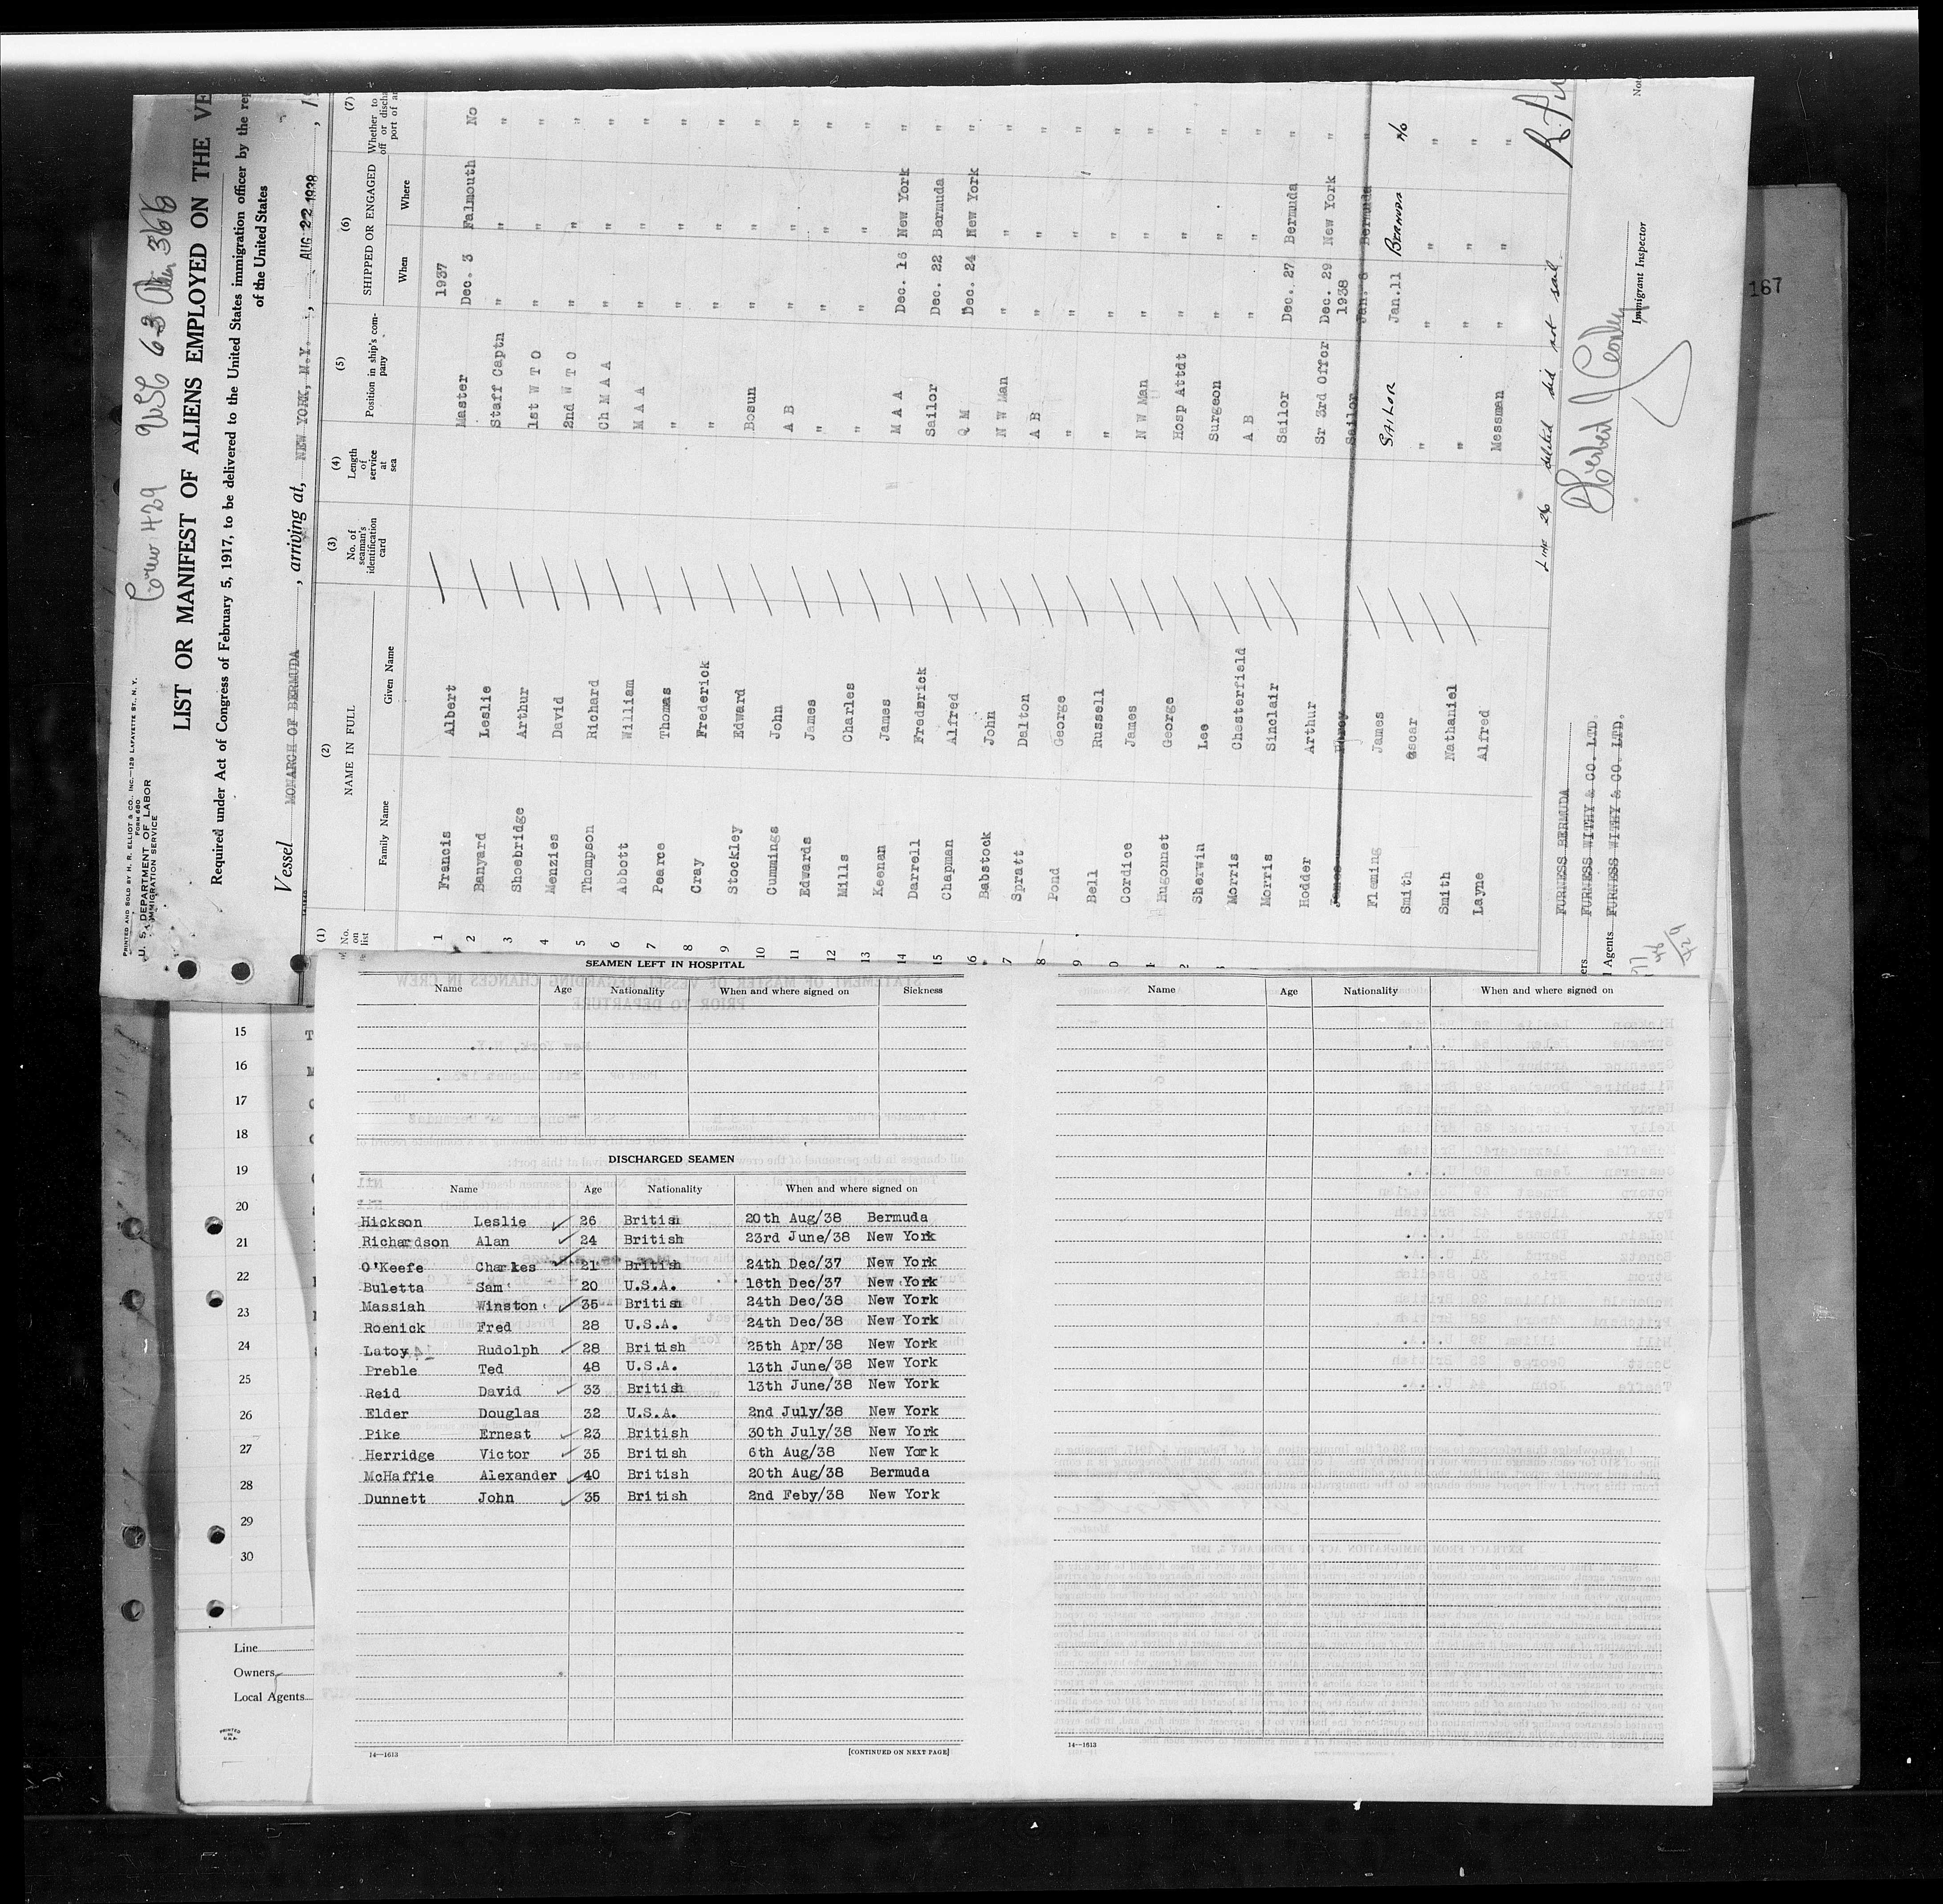 PRINTED AND SOLD BY H. R. ELLIOT & CO., INC.—129 LAFAYETTE ST., N. Y.
FORM 680
U. S. DEPARTMENT OF LABOR
IMMIGRATION SERVICE
Crew 429
LIST OR MANIFEST OF ALIENS EMPLOYED ON THE VE
Required under Act of Congress of February 5, 1917, to be delivered to the United States immigration officer by the rep
of the United States
Vessel MONARCH OF BERMUDA, arriving at, NEW YORK, N.Y., AUG 22 1938, 1
(1) (2) (3) (4) (5) (6) (7)
No. on list NAME IN FULL No. of seaman's identification card Length of service at sea Position in ship's com- pany SHIPPED OR ENGAGED Whether to off or discha port of ar
Family Name Given Name When Where
1937
1 Francis Albert Master Dec. 3 Falmouth No
2 Banyard Leslie Staff Captn " " "
3 Shoebridge Arthur 1st W T O " " "
4 Menzies David 2nd W T O " " "
5 Thompson Richard Ch M A A " " "
6 Abbott William M A A " " "
7 Pearce Thomas " " " "
8 Cray Frederick " " " "
9 Stockley Edward Bosun " " "
10 Cummings John A B " " "
11 Edwards James " " " "
12 Mills Charles " " " "
13 Keenan James M A A Dec. 16 New York "
14 Darrell Frederick Sailor Dec. 22 Bermuda "
15 Chapman Alfred Q M Dec. 24 New York "
16 Babstock John N W Man " " "
7 Spratt Dalton A B " " "
8 Pond George " " " "
9 Bell Russell " " " "
0 Cordice James N W Man " " "
1 Hugonnet George Hosp Attdt " " "
2 Sherwin Lee Surgeon " " "
Morris Chesterfield A B " " "
Morris Sinclair Sailor Dec. 27 Bermuda "
Hodder Arthur Sr 3rd Offcr Dec. 29 New York "
1938
James Percy Sailor Jan. 6 Bermuda "
Fleming James SAILOR Jan.11 BERMUDA No
Smith Oscar " " " "
Smith Nathaniel " " " "
Layne Alfred Messman " " "
Line 26 deleted did not sail
FURNESS BERMUDA
ers FURNESS WITHY & CO. LTD.
l Agents FURNESS WITHY & CO. LTD.
Immigrant Inspector
Not
167
15
16
17
18
19
20
21
22
23
24
25
26
27
28
29
30
Line
Owners
Local Agents
PRINTED IN U.S.A.
SEAMEN LEFT IN HOSPITAL
Name Age Nationality When and where signed on Sickness
DISCHARGED SEAMEN
Name Age Nationality When and where signed on
Hickson Leslie 26 British 20th Aug/38 Bermuda
Richardson Alan 24 British 23rd June/38 New York
O'Keefe Charles 21 British 24th Dec/37 New York
Buletta Sam 20 U.S.A. 16th Dec/37 New York
Massiah Winston 35 British 24th Dec/38 New York
Roenick Fred 28 U.S.A. 24th Dec/38 New York
Latoy Rudolph 28 British 25th Apr/38 New York
Preble Ted 48 U.S.A. 13th June/38 New York
Reid David 33 British 13th June/38 New York
Elder Douglas 32 U.S.A. 2nd July/38 New York
Pike Ernest 23 British 30th July/38 New York
Herridge Victor 35 British 6th Aug/38 New York
McHaffie Alexander 40 British 20th Aug/38 Bermuda
Dunnett John 35 British 2nd Feby/38 New York
14—1613
[CONTINUED ON NEXT PAGE]
Name Age Nationality When and where signed on
14—1613